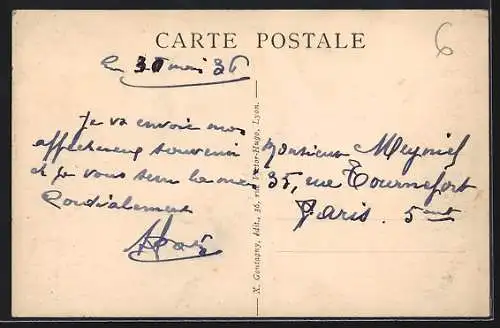 CARTE POSTALE
6
le 30 mai 36
Je va envoie mos
affectueux souvenir
et je vous serre la main
Cordialement
Monsieur Meyniel
35, rue Tournefort
Paris. 5me
X. Goutagny, édit., 36, rue Victor-Hugo, Lyon.